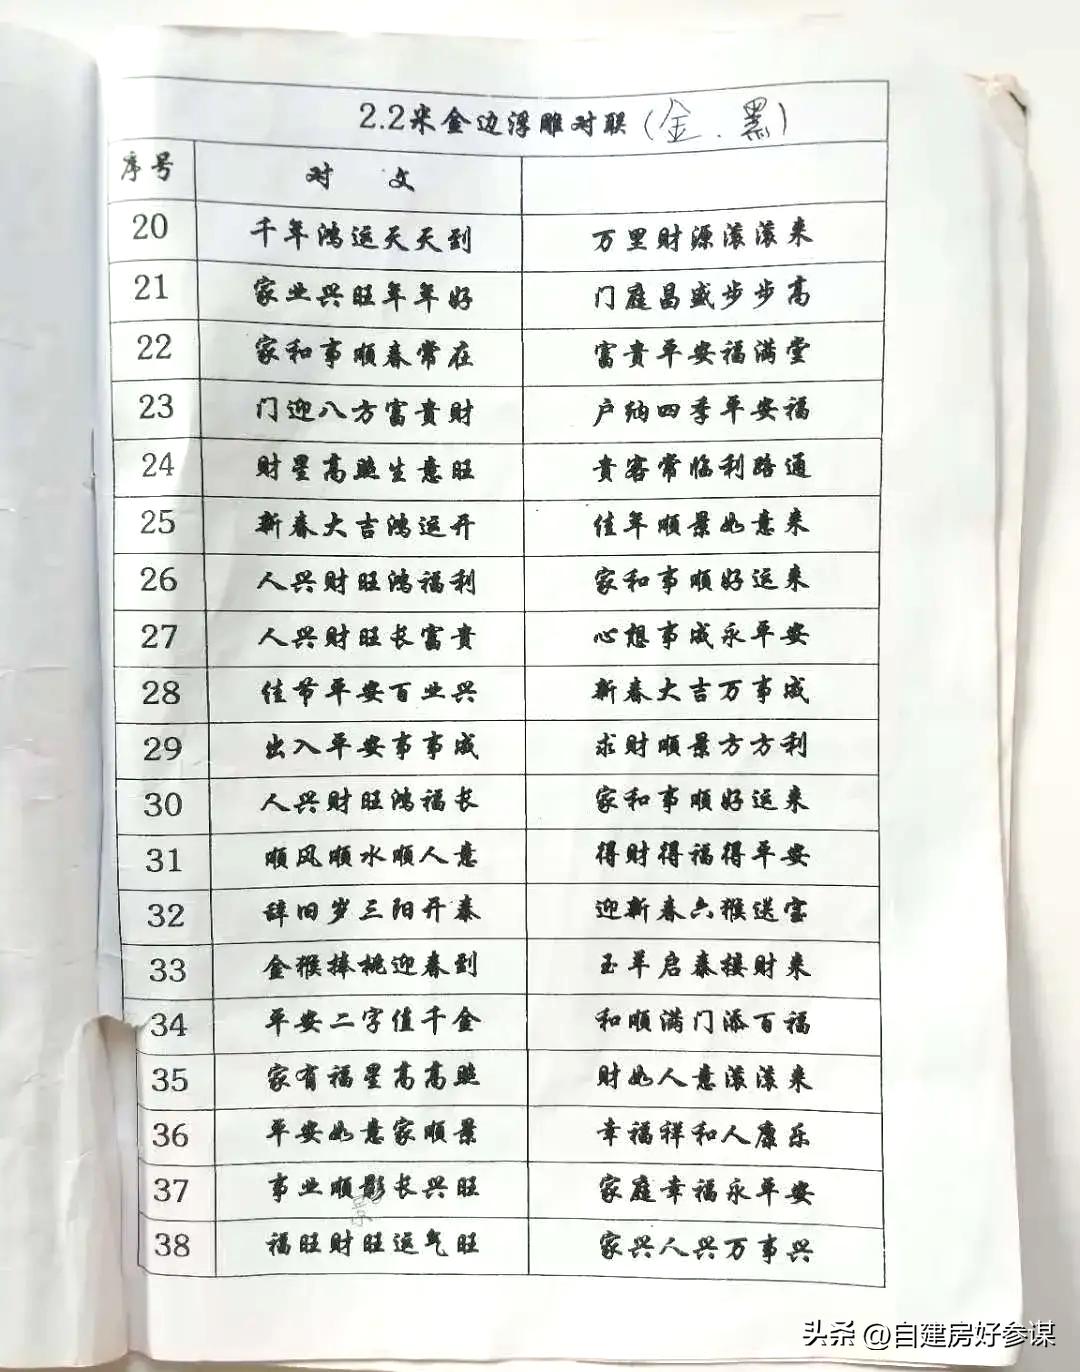 2.2米金边浮雕对联(金.黑)
序号 对 文
20 千年鸿运天天到 万里财源滚滚来
21 家业兴旺年年好 门庭昌盛步步高
22 家和事顺春常在 富贵平安福满堂
23 门迎八方富贵财 户纳四季平安福
24 财星高照生意旺 贵客常临利路通
25 新春大吉鸿运开 佳年顺景如意来
26 人兴财旺鸿福利 家和事顺好运来
27 人兴财旺长富贵 心想事成永平安
28 佳节平安百业兴 新春大吉万事成
29 出入平安事事成 求财顺景方方利
30 人兴财旺鸿福长 家和事顺好运来
31 顺风顺水顺人意 得财得福得平安
32 辞旧岁三阳开泰 迎新春六猴送宝
33 金猴捧桃迎春到 玉羊启泰接财来
34 平安二字值千金 和顺满门添百福
35 家有福星高高照 财如人意滚滚来
36 平安如意家顺景 幸福祥和人康乐
37 事业顺影长兴旺 家庭幸福永平安
景
38 福旺财旺运气旺 家兴人兴万事兴
头条 @自建房好参谋